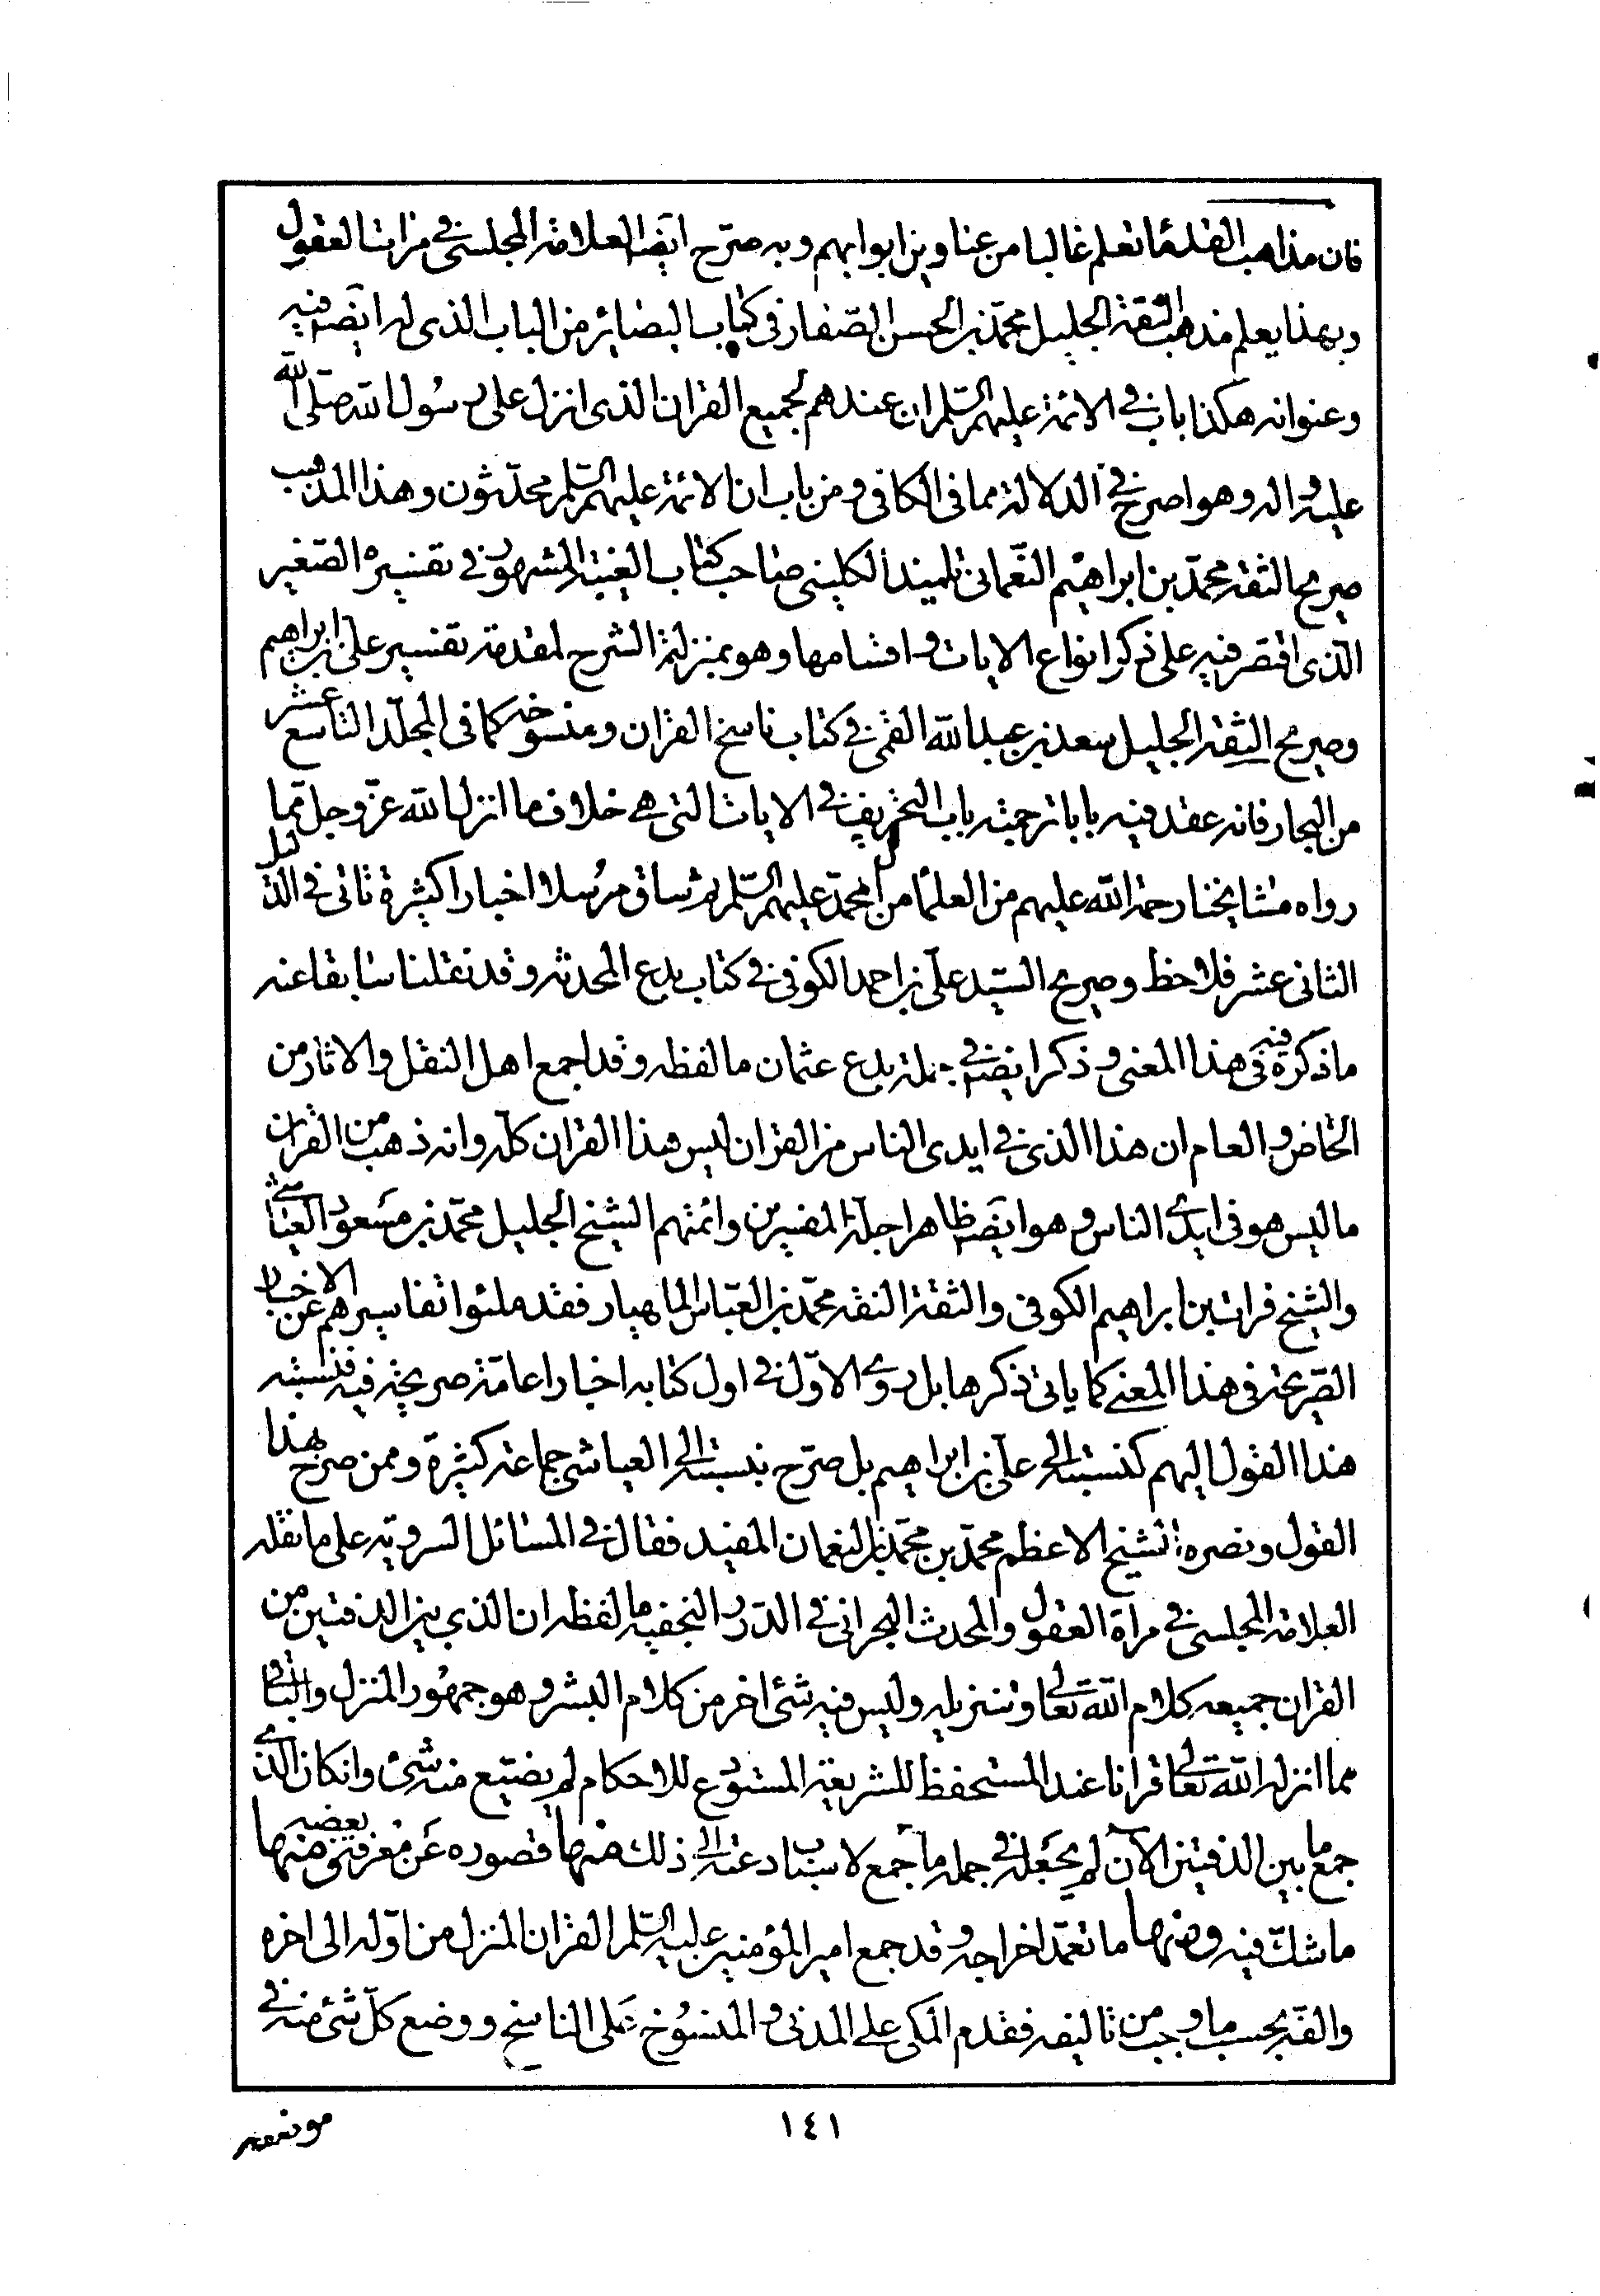 فان مذاهب القدماء تعلم غالبا من عناوين ابوابهم وبه صرّح ايضا العلامة المجلسى فى مرات العقول
وبهذا يعلم مذهب الثقة الجليل محمّد بن الحسن الصّفار فى كتاب البصائر من الباب الذى له ايضا فيه
وعنوانه هكذا باب فى الائمة عليهم السّلم ان عندهم لجميع القران الذى انزل على رسول الله صلّى الله
عليه واله وهو اصرح فى الدلالة مما فى الكافى ومن باب ان الائمة عليهم السّلم محدّثون وهذا المذهب
صريح الثقة محمّد بن ابراهيم النّعمانى تلميذ الكلينى صاحب كتاب الغيبة المشهور فى تفسيره الصّغير
الّذى اقتصر فيه على ذكر انواع الايات واقسامها وهو بمنزلة الشرح لمقدمة تفسير على بن ابراهيم
وصريح الثقة الجليل سعد بن عبد الله القمى فى كتاب ناسخ القران ومنسوخه كما فى المجلّد التاسع عشر
من البحار فانه عقد فيه بابا ترجمته باب التحريف فى الايات التى هى خلاف ما انزل الله عزّ وجل ممّا
رواه مشايخنا رحمة الله عليهم من العلماء من ال محمّد عليهم السّلم ثم ساق مرسلا اخبارا كثيرة تاتى فى الدّليل
الثانى عشر فلاحظ وصريح السّيد علىّ بن احمد الكوفى فى كتاب بدع المحدثه وقد نقلنا سابقا عنه
ما ذكره فيه فى هذا المعنى وذكر ايضا فى جملة بدع عثمان ما لفظه وقد اجمع اهل النقل والاثار من
الخاص والعام ان هذا الذى فى ايدى الناس من القران ليس هذا القران كلّه وانه ذهب من القران
ما ليس هو فى ايدى الناس وهو ايضا ظاهر اجلّة المفسرين وائمتهم الشيخ الجليل محمّد بن مسعود العيّاشى
والشيخ فرات بن ابراهيم الكوفى والثقة النقه محمّد بن العبّاس الماهيار فقد ملئوا تفاسيرهم عن الاخبار
الصّريحة فى هذا المعنى كما ياتى ذكرها بل روى الاوّل فى اول كتابه اخبارا عامّة صريحة فيه فنسبة
هذا القول اليهم كنسبته الى علىّ بن ابراهيم بل صرّح بنسبته الى العياشى جماعة كثيرة وممن صرح بهذا
القول ونصره الشيخ الاعظم محمّد بن محمّد بن النعمان المفيد فقال فى المسائل السروية على ما نقله
العلامة المجلسى فى مراة العقول والمحدث البحرانى فى الدّرر النجفيه ما لفظه ان الذى بين الدفتين من
القران جميعه كلام الله تعالى وتنزيله وليس فيه شئ اخر من كلام البشر وهو جمهور المنزل والباقى
مما انزله الله تعالى قرانا عند المستحفظ للشريعة المستودع للاحكام لم يضيّع منه شئ وانكان الّذى
جمع ما بين الدفتين الآن لم يجعله فى جمله ما جمع لاسباب دعته الى ذلك منها قصوره عن معرفة بعضه ومنها
ما شكّ فيه ومنها ما تعمّد اخراجه وقد جمع امير المؤمنين عليه السّلم القران المنزل من اوّله الى اخره
والفه بحسب ما وجب من تاليفه فقدم المكى على المدنى والمنسوخ على الناسخ ووضع كلّ شئ منه فى
١٤١
موضعه